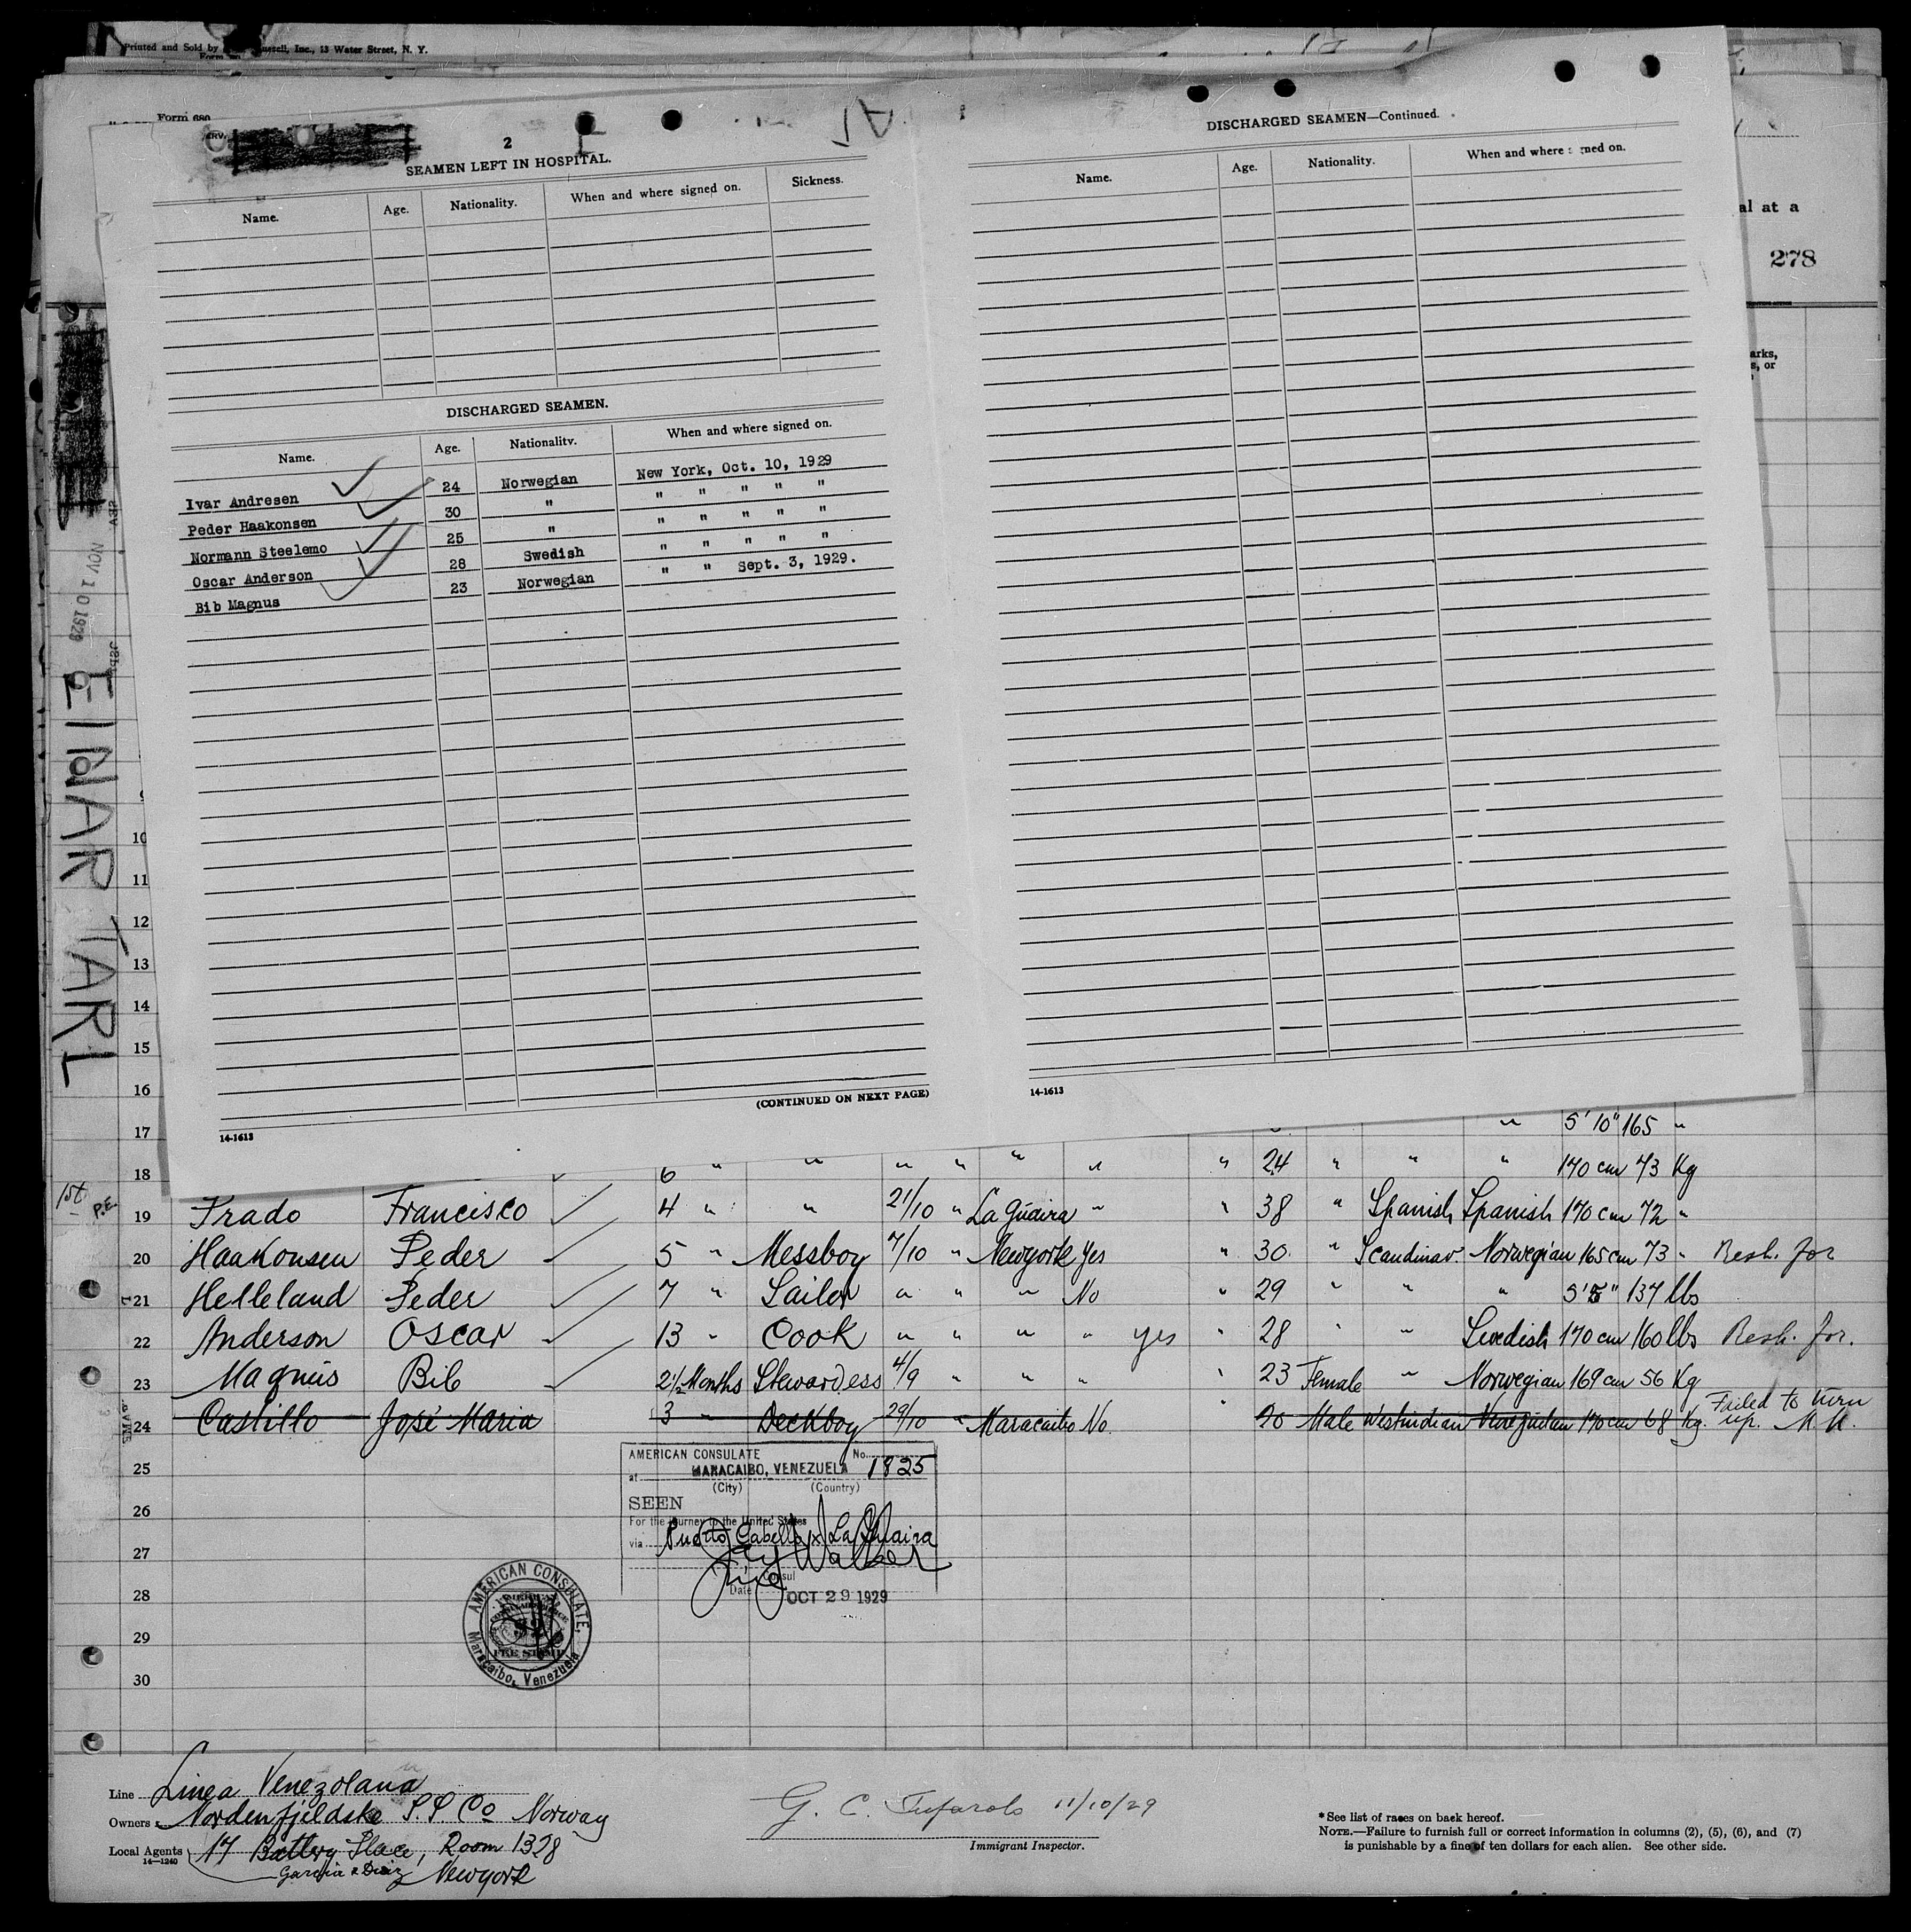 Printed and Sold by
Inc., 13 Water Street, N. Y.
Form 680
2
SEAMEN LEFT IN HOSPITAL.
Name. Age. Nationality. When and where signed on. Sickness.
DISCHARGED SEAMEN.
Name. Age. Nationality. When and where signed on.
Ivar Andresen 24 Norwegian New York, Oct. 10, 1929
Peder Haakonsen 30 " " " " " "
Normann Steelemo 25 " " " " " "
Oscar Anderson 28 Swedish " " " " "
Bib Magnus 23 Norwegian " " Sept. 3, 1929.
(CONTINUED ON NEXT PAGE)
14-1613
DISCHARGED SEAMEN—Continued.
Name. Age. Nationality. When and where signed on.
14-1613
al at a
278
arks,
s, or
NOV 10 1929
EINAR JARL
10
11
12
13
14
15
16
17 " 5'10" 165 "
18 6 " " " " " " " 24 " " " 170 cm 73 Kg
1st P.E. 19 Prado Francisco 4 " " 21/10 " La Guaira " " 38 " Spanish Spanish 170 cm 72 "
20 Haakonsen Peder 5 " Messboy 7/10 " Newyork Yes " 30 " Scandinav. Norwegian 165 cm 73 " Resh. for
21 Helleland Peder 7 " Sailor " " " No " 29 " " " 5'5" 137 lbs
22 Anderson Oscar 13 " Cook " " " " yes " 28 " " Swedish 170 cm 160 lbs Resh. for.
23 Magnus Bib 2½ Months Stewardess 4/9 " " " " 23 Female " Norwegian 169 cm 56 Kg
24 Castillo José Maria 3 " Deckboy 29/10 " Maracaibo No. " 20 Male Westindian Venezuelan 170 cm 68 Kg. Failed to turn up.
25
26
27
28
29
30
AMERICAN CONSULATE No. 1825
at MARACAIBO, VENEZUELA
(City) (Country)
SEEN
For the journey to the United States
via Puerto Cabello x La Guaira
Consul
Date OCT 29 1929
AMERICAN CONSULATE,
Maracaibo, Venezuela
FEE STAMP
Line Linea Venezolana
Owners Nordenfjeldske S.S Co Norway
Local Agents 17 Battery Place, Room 1328
14—1240
Garcia & Diaz Newyork
G. C. 11/10/29
Immigrant Inspector.
*See list of races on back hereof.
NOTE.—Failure to furnish full or correct information in columns (2), (5), (6), and (7)
is punishable by a fine of ten dollars for each alien. See other side.